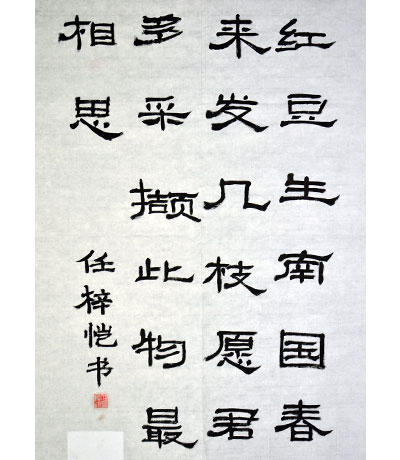 红豆生南国春
来发几枝愿君
多采撷此物最
相思
任梓恺书